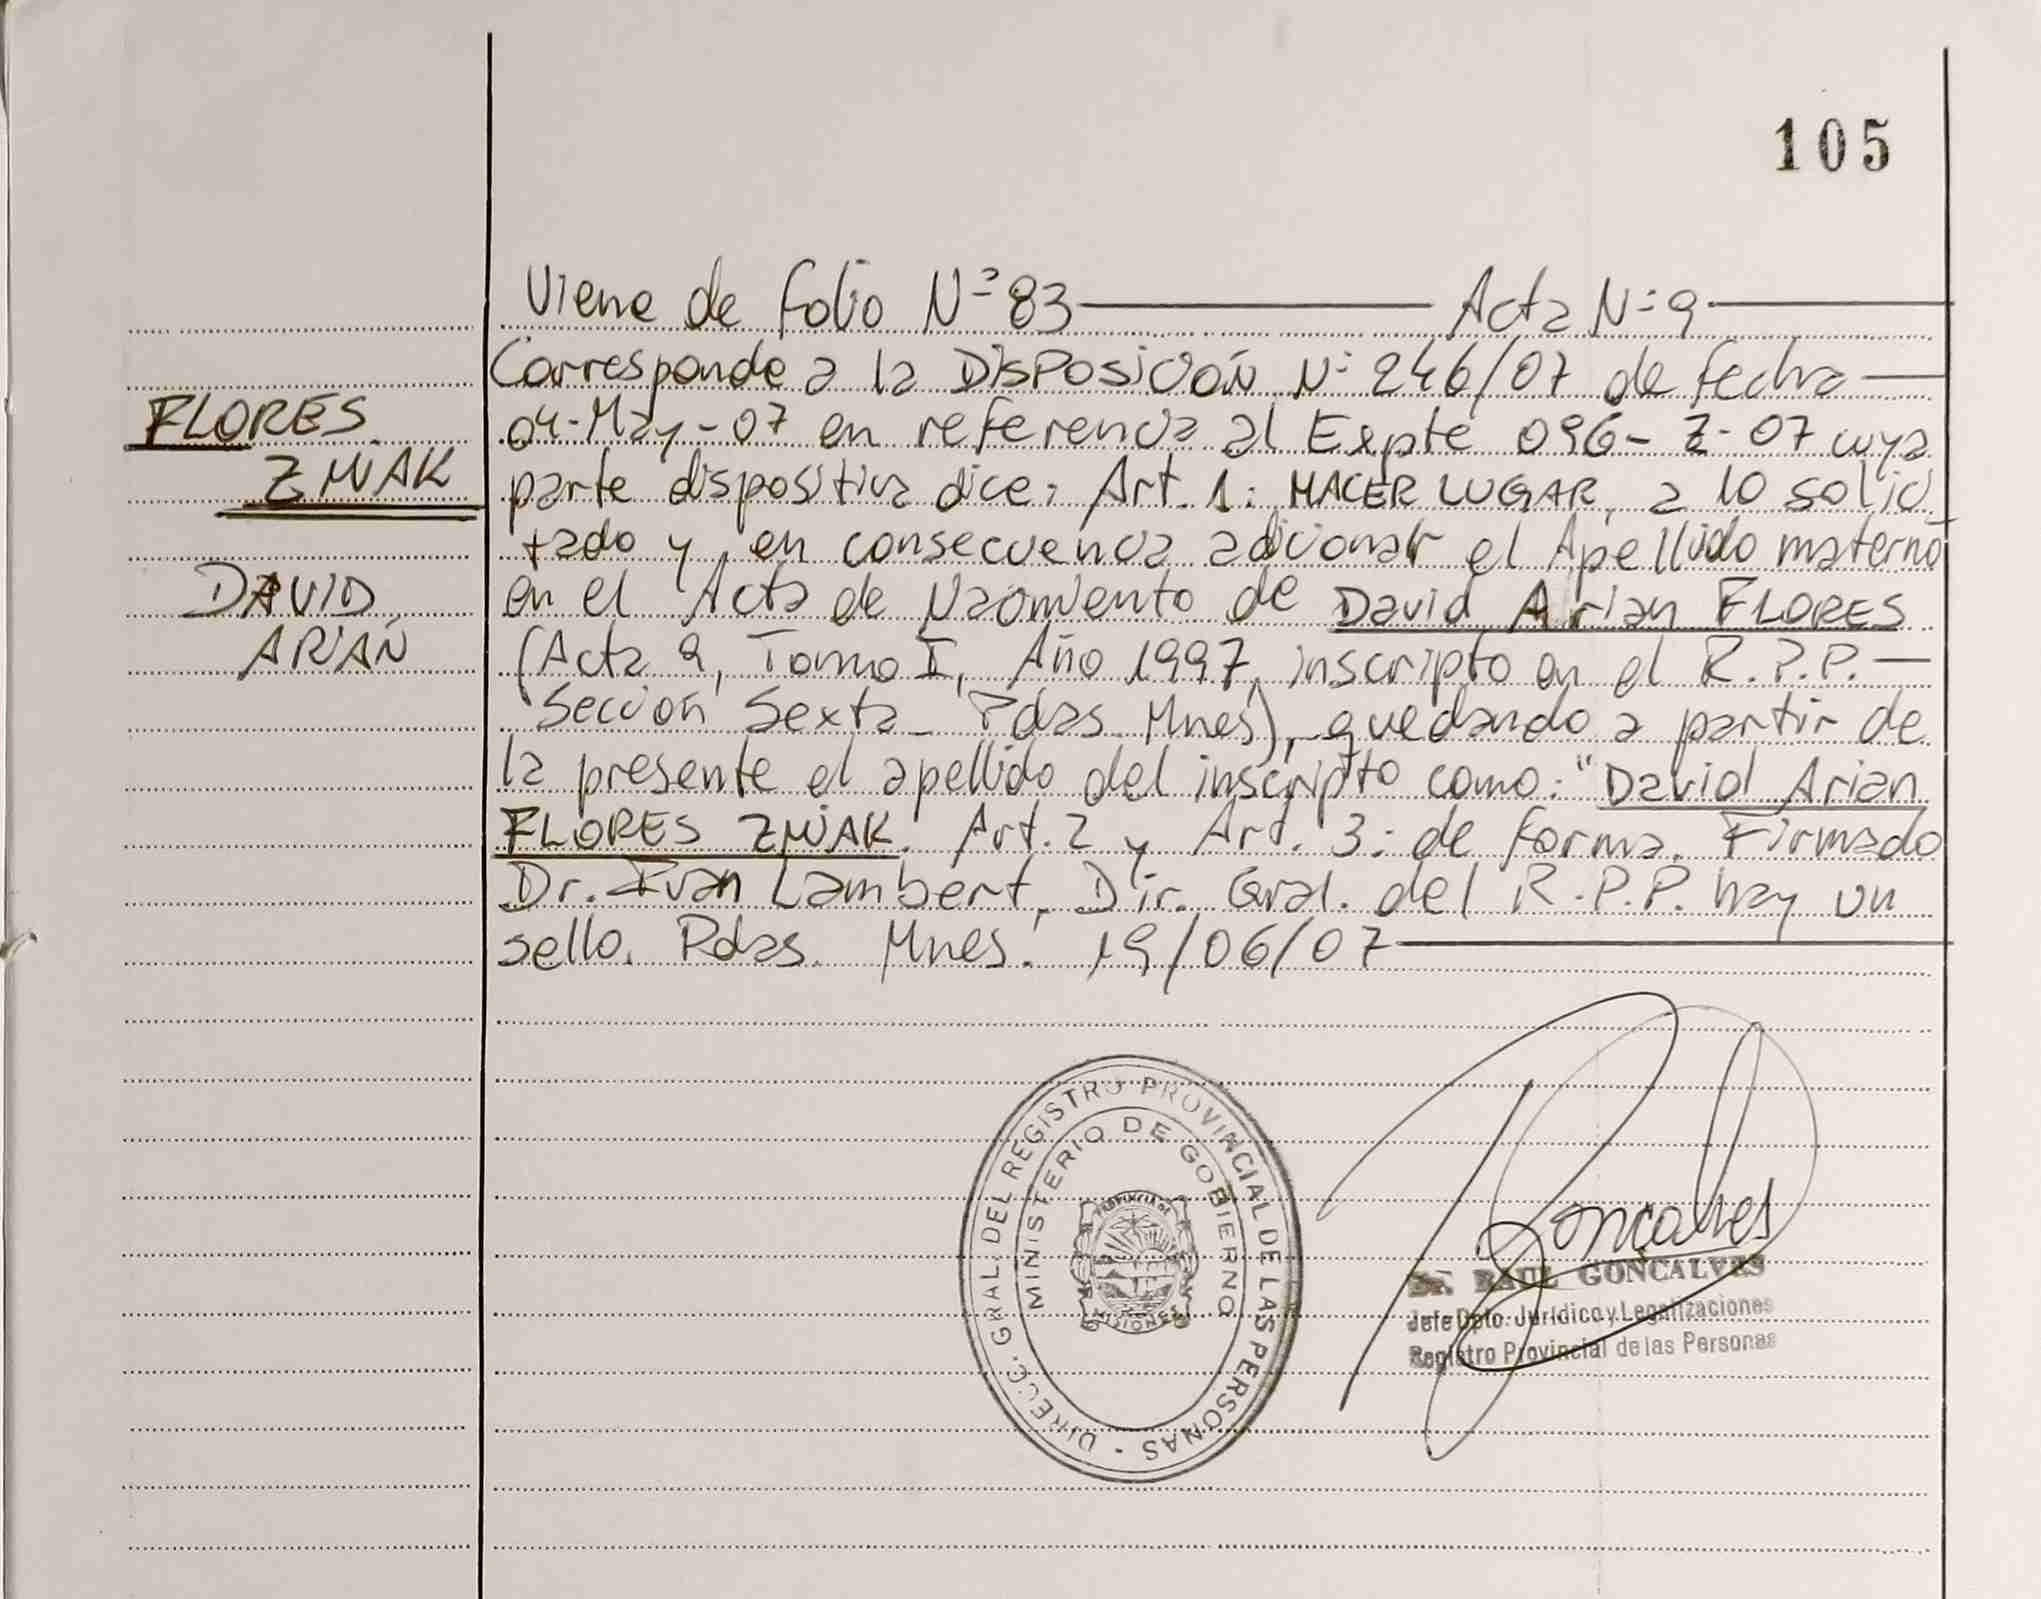 105
Viene de folio Nº 83 — Acta Nº 9 —
Corresponde a la DISPOSICIÓN Nº 246/07 de fecha —
04-May-07 en referencia al Expte 096-Z-07 cuya
parte dispositiva dice: Art. 1: HACER LUGAR, a lo solici
tado y, en consecuencia adicionar el Apellido materno
en el Acta de Nacimiento de David Arian FLORES
(Acta 9, Tomo I, Año 1997, inscripto en el R.P.P. —
Sección Sexta - Pdas. Mnes), quedando a partir de
la presente el apellido del inscripto como: "David Arian
FLORES ZMIJAK. Art. 2 y Art. 3: de forma. Firmado
Dr. Ivan Lambert, Dir. Gral. del R.P.P. hay un
sello. Pdas. Mnes. 19/06/07 —
FLORES
ZMIJAK
DAVID
ARIAN
DIRECC. GRAL. DEL REGISTRO PROVINCIAL DE LAS PERSONAS -
MINISTERIO DE GOBIERNO
PROVINCIA DE
MISIONES
Gonçalves
Dr. RAUL GONÇALVES
Jefe Dpto. Jurídico y Legalizaciones
Registro Provincial de las Personas